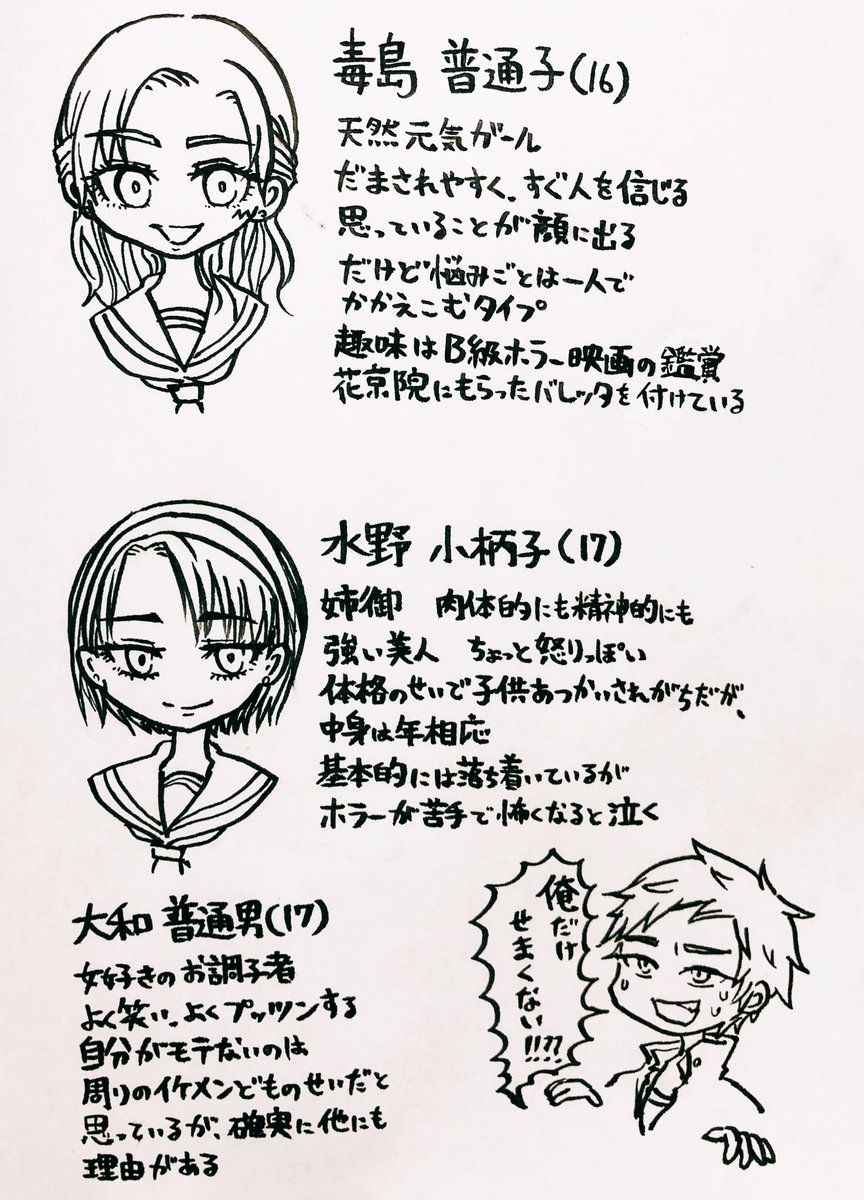 毒島 普通子(16)
天然元気ガール
だまされやすく、すぐ人を信じる
思っていることが顔に出る
だけど悩みごとは一人で
かかえこむタイプ
趣味はB級ホラー映画の鑑賞
花京院にもらったバレッタを付けている
水野 小柄子(17)
姉御 肉体的にも精神的にも
強い美人 ちょっと怒りっぽい
体格のせいで子供あつかいされがちだが、
中身は年相応
基本的には落ち着いているが
ホラーが苦手で怖くなると泣く
大和 普通男(17)
女好きのお調子者
よく笑い、よくプッツンする
自分がモテないのは
周りのイケメンどものせいだと
思っているが、確実に他にも
理由がある
俺だけ
せまくない!!??